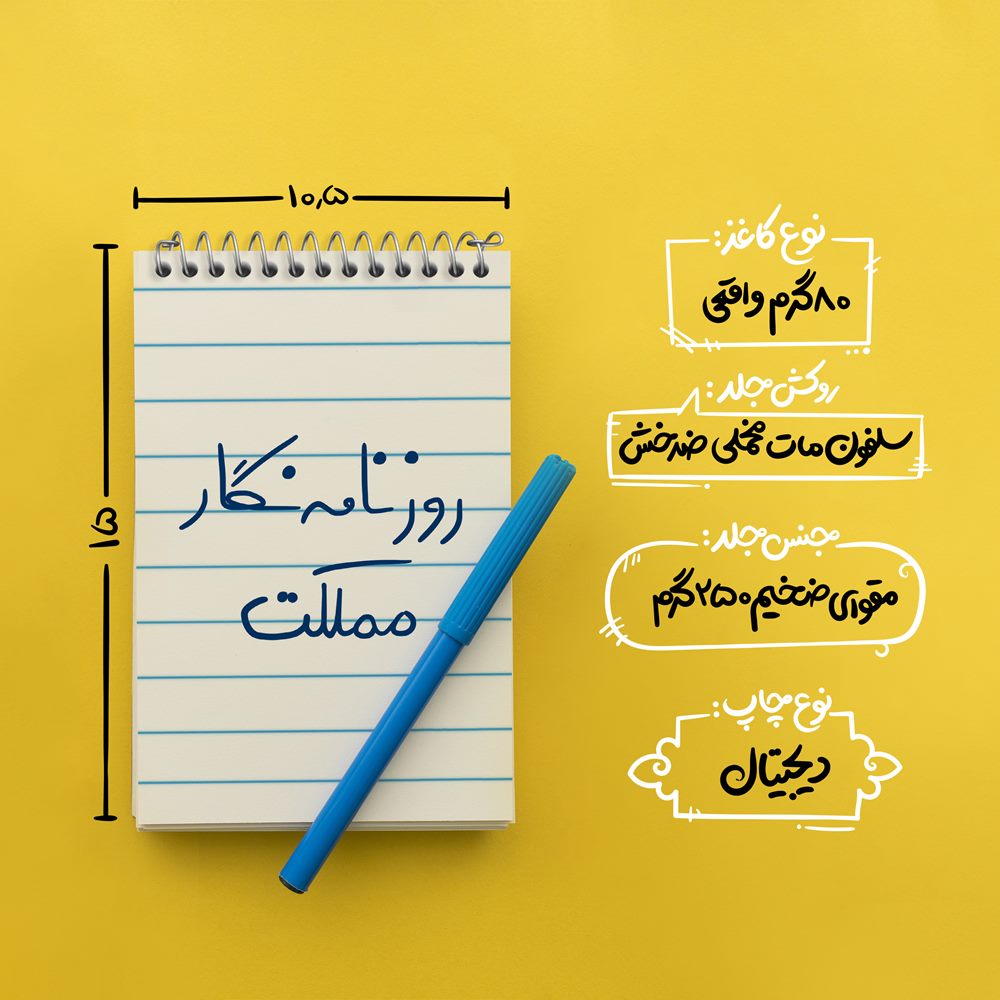 ۱۰٫۵
۱۵
روزنامه‌نگار
مملکت
نوع کاغذ:
۸۰گرم واقعی
روکش جلد:
سلفون مات مخملی ضدخش
جنس جلد:
مقوای ضخیم ۲۵۰گرم
نوع چاپ:
دیجیتال